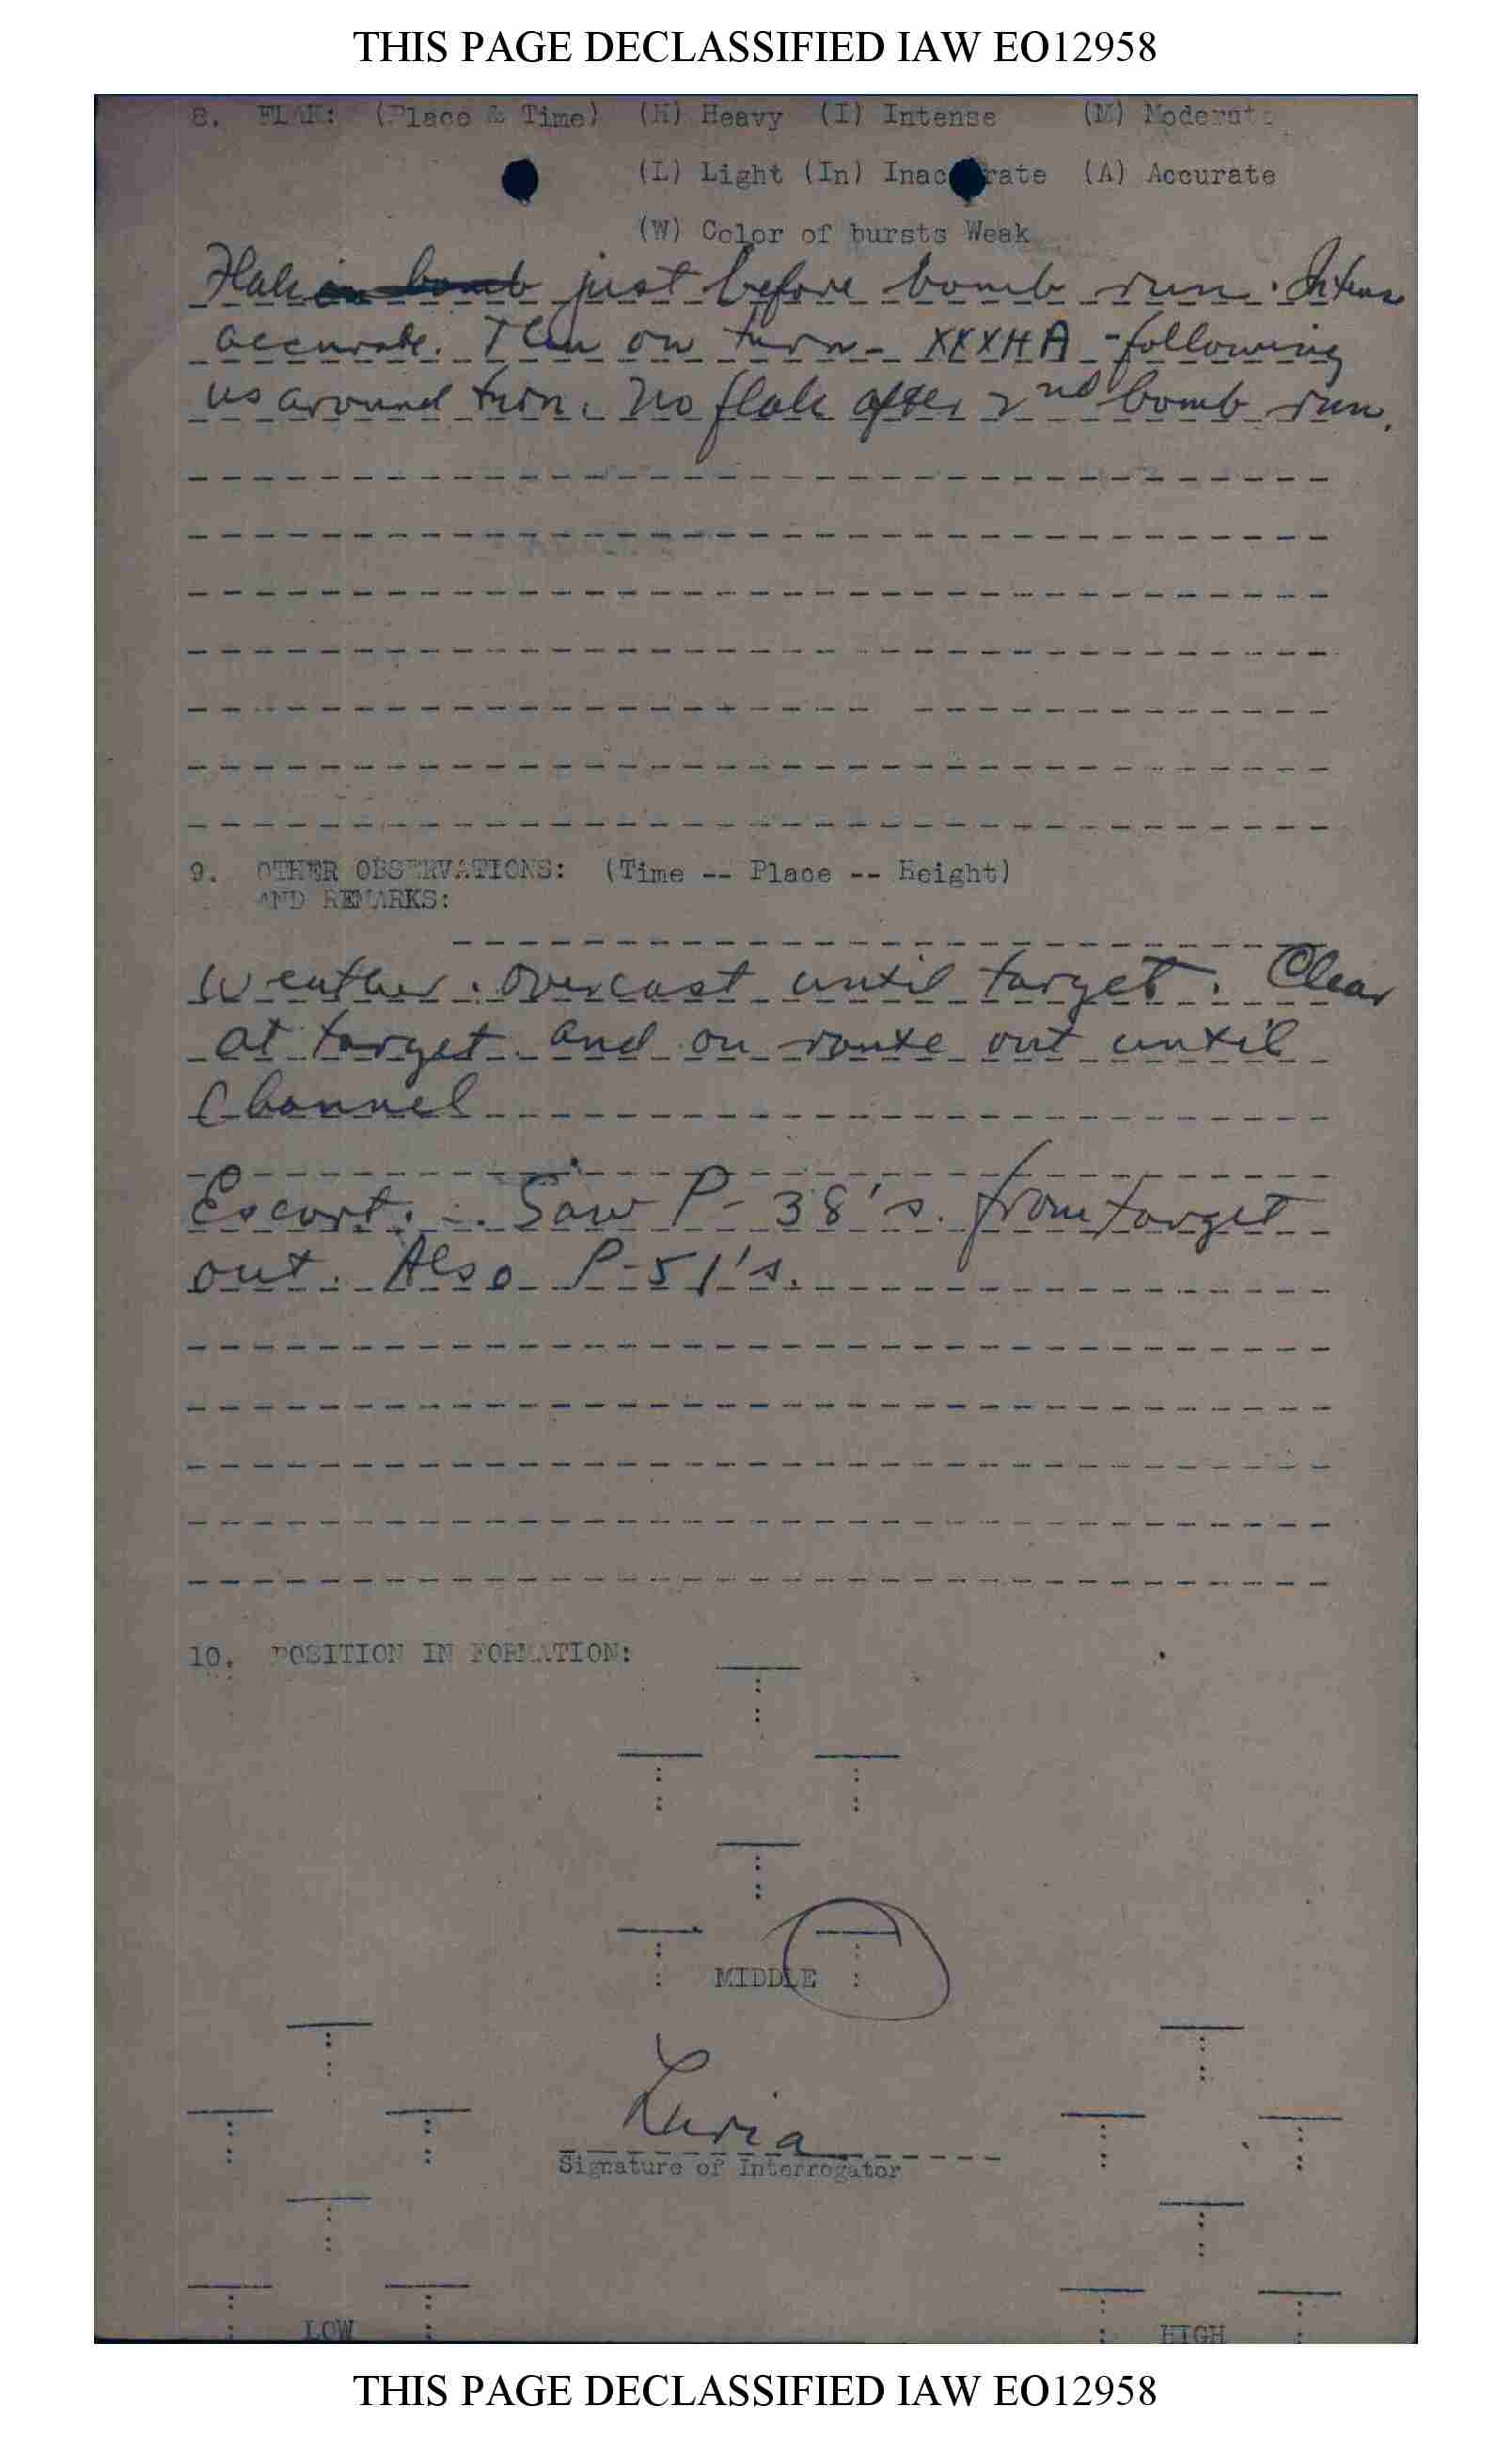 THIS PAGE DECLASSIFIED IAW EO12958
8. FLAK: (Place & Time) (H) Heavy (I) Intense (M) Moderate
(L) Light (In) Inaccurate (A) Accurate
(W) Color of bursts Weak
Flak in bomb just before bomb run. Intense
accurate. Then on turn - XXXHA - following
us around turn. No flak after 2nd bomb run.
9. OTHER OBSERVATIONS: (Time -- Place -- Height)
AND REMARKS:
Weather: overcast until target. Clear
at target and on route out until
Channel
Escort: Saw P-38's from target
out. Also P-51's.
10. POSITION IN FORMATION:
MIDDLE
Luria
Signature of Interrogator
LOW HIGH
THIS PAGE DECLASSIFIED IAW EO12958